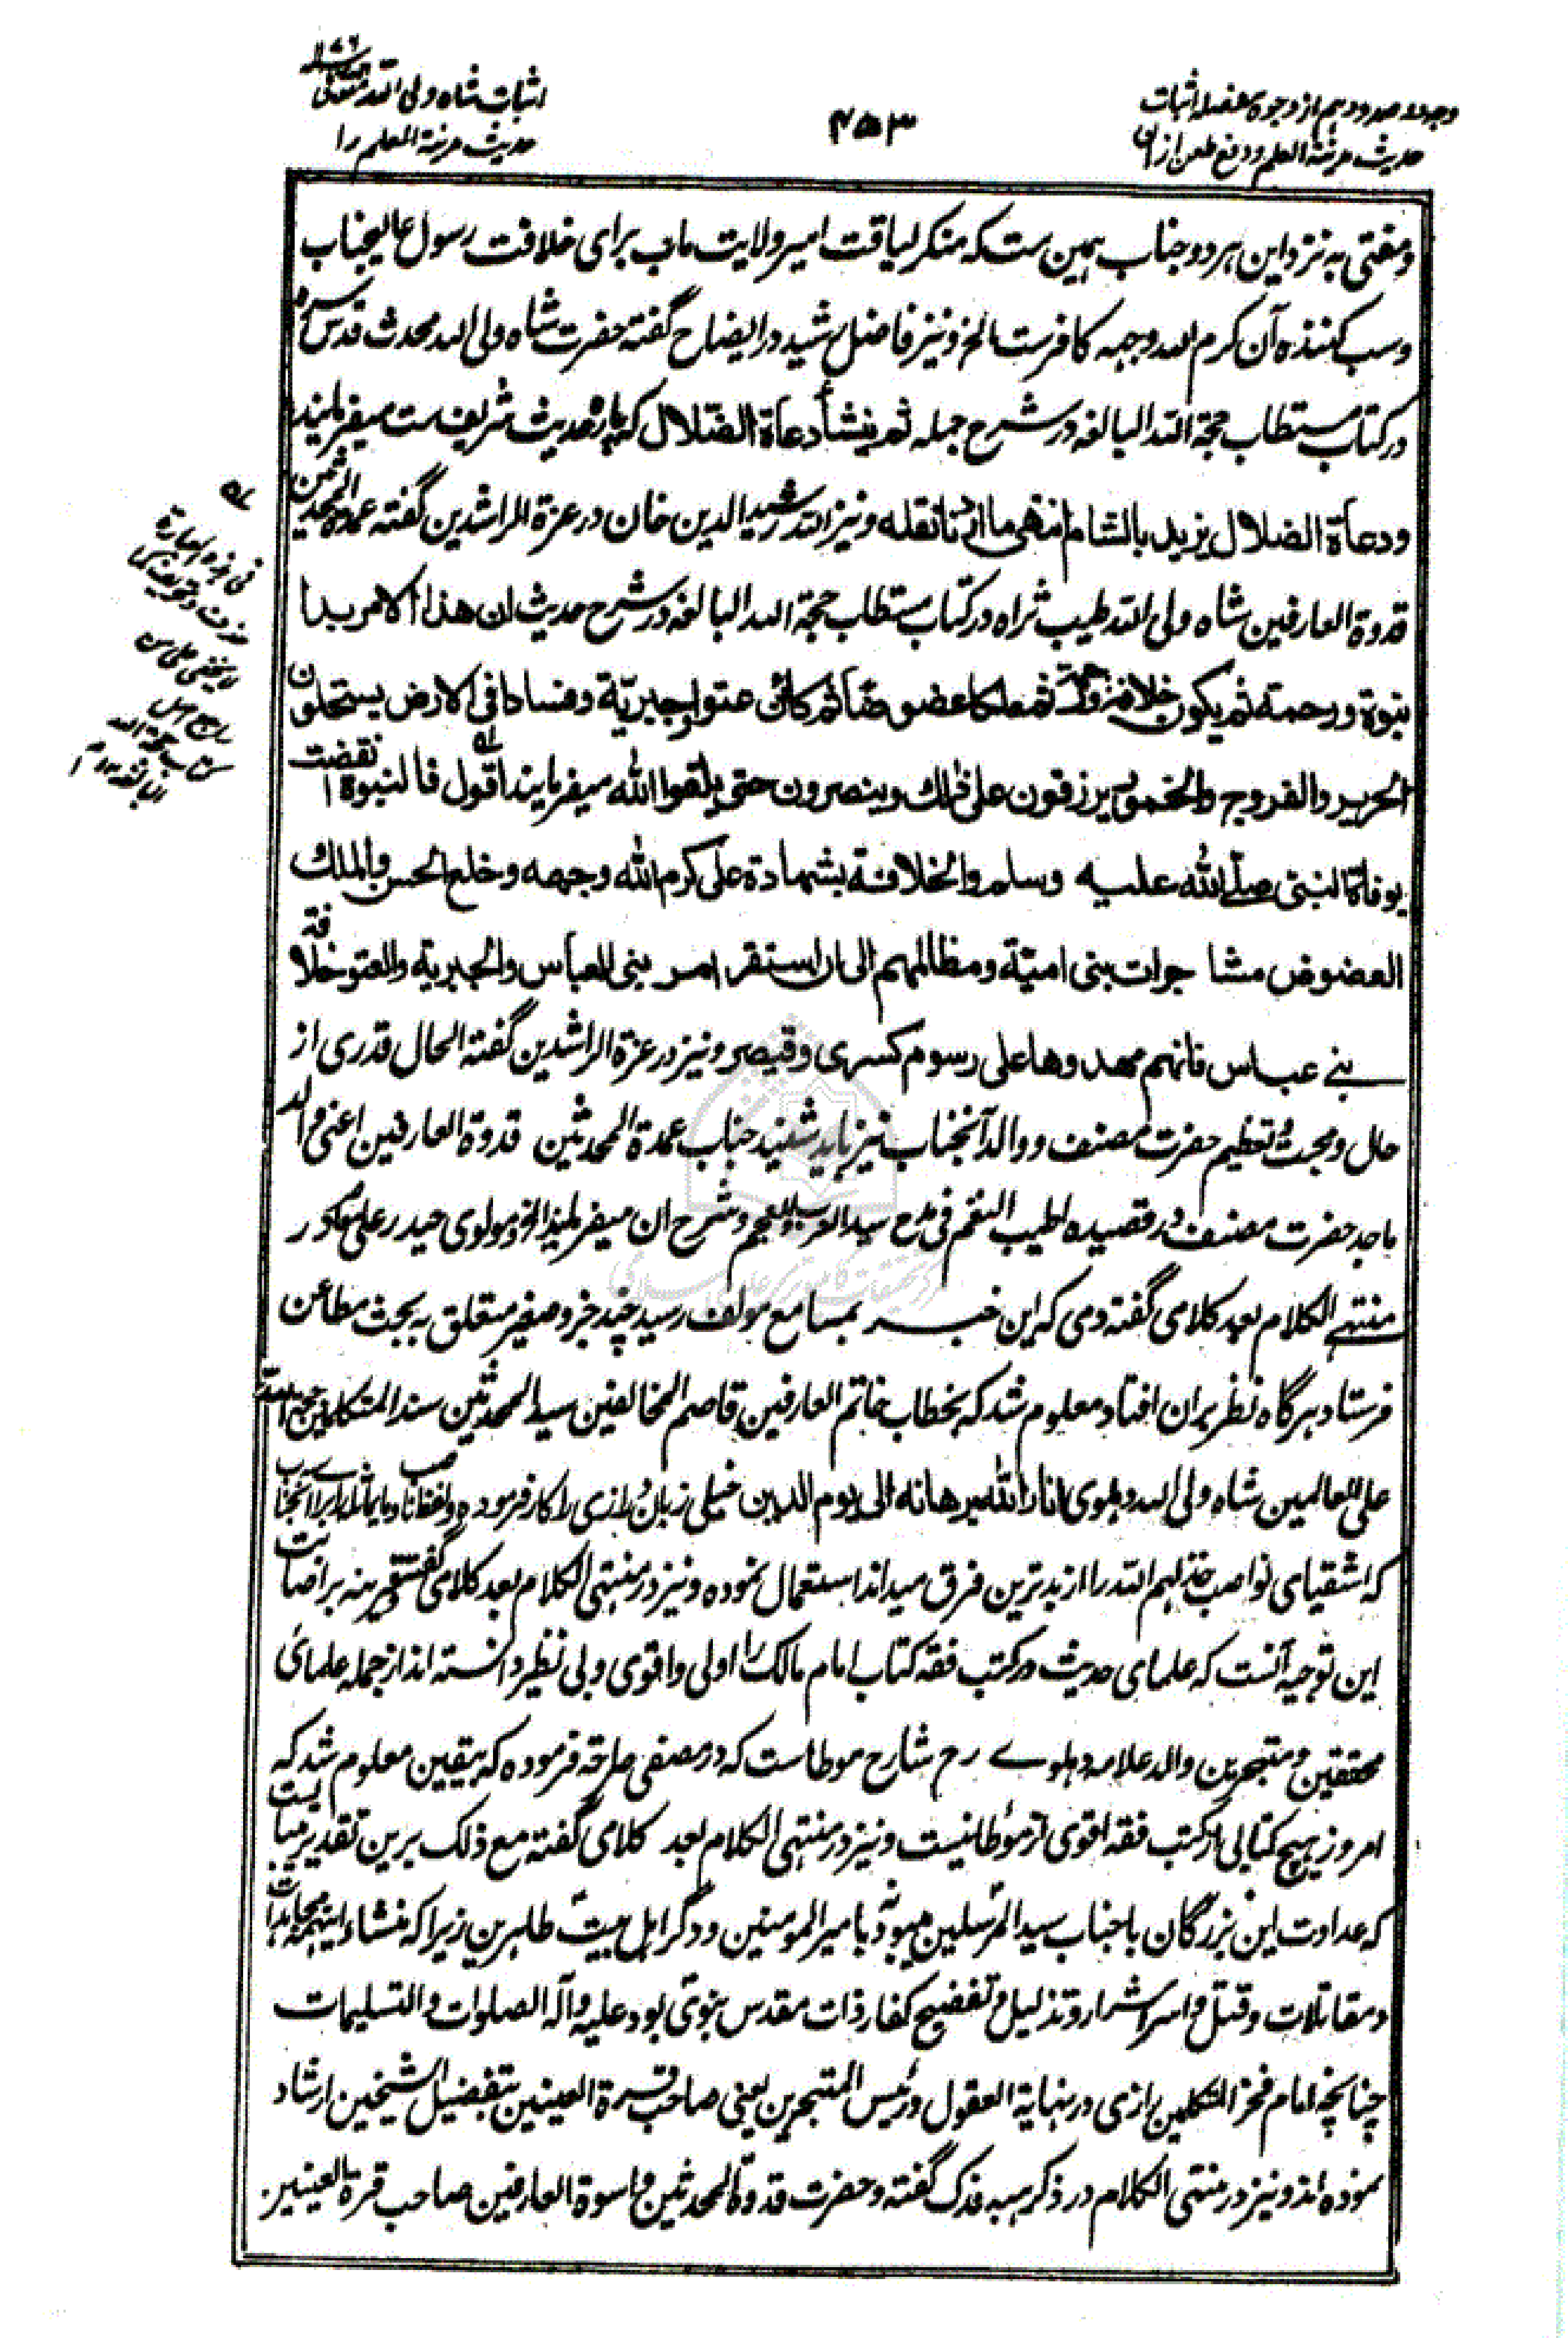 وجه دو صد و دهم از وجوه مفصله اثبات
حدیث مدینة العلم و دفع طعن از ان
۴۵۳
اثبات شاه ولی الله
حدیث مدینة العلم را
و مفتی به نزد این هر دو جناب همین ست که منکر لیاقت امیر ولایت مآب برای خلافت رسول عالیجناب
و سب کننده آن کرم الله وجهه کافرست الخ و نیز فاضل رشید در ایضاح گفته حضرت شاه ولی الله محدث قدس سره
در کتاب مستطاب حجة الله البالغه در شرح جمله ثم ینشأ دعاة الضلال که پاره حدیث شریف ست میفرمایند
و دعاة الضلال یزید بالشام انتهی ما اردنا نقله و نیز رشید الدین خان در عزة الراشدین گفته عمدة المحدثین
قدوة العارفین شاه ولی الله طیب ثراه در کتاب مستطاب حجة الله البالغه در شرح حدیث ان هذا الامر بدا
نبوة و رحمة ثم یکون خلافة و رحمة ثم ملکا عضوضا ثم کائن عتوا و جبریّة و فسادا فی الارض یستحلون
الحریر و الفروج و الخمور یرزقون علی ذلک و ینصرون حتی یلقوا الله میفرمایند اقول فالنبوة انقضت
بوفاة النبی صلی الله علیه وسلم و الخلافة بشهادة علی کرم الله وجهه و خلع الحسن و الملک
العضوض مشاجرات بنی امیّة و مظالمهم الی ان استقر امر بنی العباس و الجبریة و العتو خلافة
بنی عباس فانهم مهدوها علی رسوم کسری و قیصر و نیز در عزة الراشدین گفته الحال قدری از
حال و مجت تعظیم حضرت مصنف و والد آنجناب نیز باید شنید جناب عمدة المحدثین قدوة العارفین اعنی والد
ماجد حضرت مصنف در قصیده اطیب النغم فی مدح سید العرب و العجم و شرح ان میفرمایند الخ و مولوی حیدر علی در
منتهی الکلام بعد کلامی گفته دمی که این خبر بمسامع مولف رسید چند جزو صغیر متعلق به بحث مطاعن
فرستاد هر گاه نظر بران افتاد معلوم شد که بخطاب خاتم العارفین قاصم المخالفین سید المحدثین سند المتکلمین حجة الله
علی العالمین شاه ولی الله دهلوی انار الله برهانه الی یوم الدین خیلی زبان درازی را کار فرموده و لفظ ناصب
که اشقیای نواصب خذلهم الله را از بدترین فرق میداند استعمال نموده و نیز در منتهی الکلام بعد کلامی گفته قرینه بر اصابت
این توجیه آنست که علمای حدیث در کتب فقه کتاب امام مالک را اولی و اقوی و بی نظیر دانسته اند از جمله علمای
محققین و متبحرین والد علامه دهلوی رح شارح موطاست که در مصفی صراحة فرموده که بیقین معلوم شد که
امروز هیچ کتابی از کتب فقه اقوی از موطا نیست و نیز در منتهی الکلام بعد کلامی گفته مع ذلک برین تقدیر میبایست
که عداوت این بزرگان با جناب سید المرسلین میبود نه با امیر المومنین و دگر اهل بیت طاهرین زیرا که منشاء اینهمه مجاهدات
و مقاتلات و قتل و اسر اشرار و تذلیل و تفضیح کفار ذات مقدس نبوی بود علیه و آله الصلوات و التسلیمات
چنانچه امام فخر المتکلمین رازی در نهایة العقول و رئیس المتبحرین یعنی صاحب قرة العینین بتفضیل الشیخین ارشاد
نموده اند و نیز در منتهی الکلام در ذکر هبه فدک گفته و حضرت قدوة المحدثین و اسوة العارفین صاحب قرة العینین